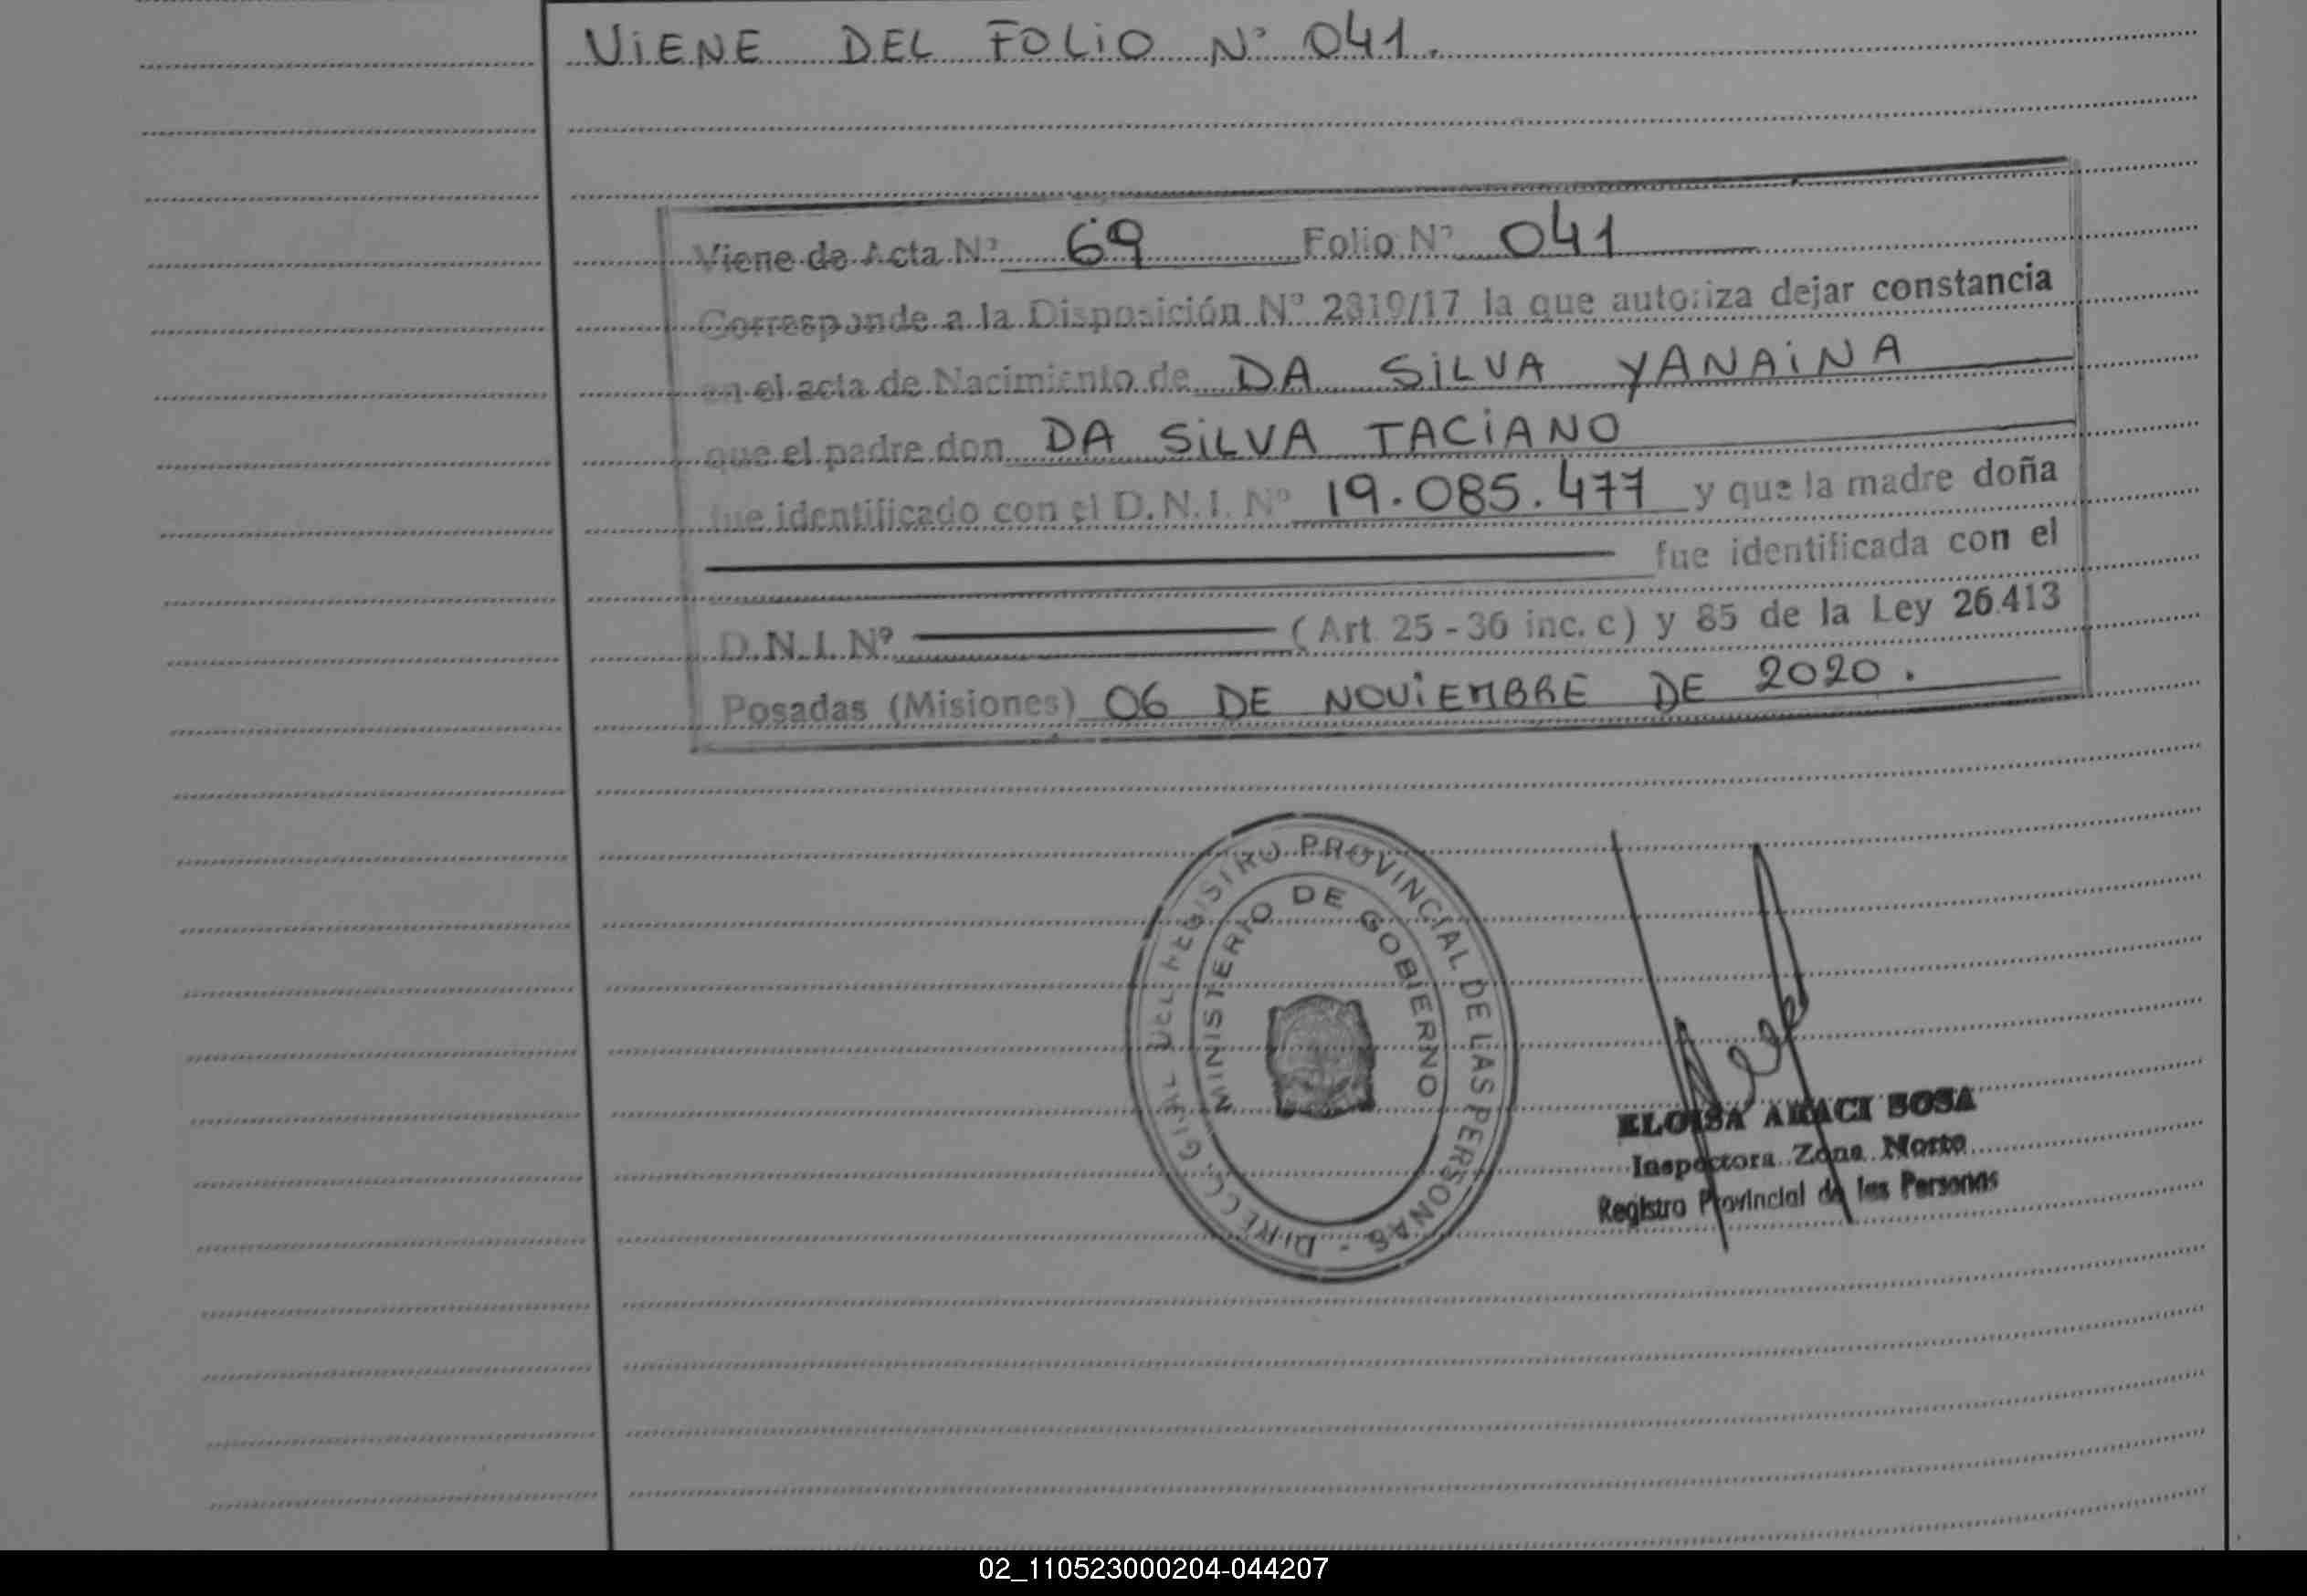 VIENE DEL FOLIO Nº 041.
Viene de Acta Nº 69 Folio Nº 041
Corresponde a la Disposición Nº 2319/17 la que autoriza dejar constancia
en el acta de Nacimiento de DA SILVA YANAINA
que el padre don DA SILVA TACIANO
fue identificado con el D.N.I. Nº 19.085.477 y que la madre doña
fue identificada con el
D.N.I. Nº (Art. 25-36 inc. c) y 85 de la Ley 26.413
Posadas (Misiones) 06 DE NOVIEMBRE DE 2020.
DIRECC. GRAL. DEL REGISTRO PROVINCIAL DE LAS PERSONAS -
MINISTERIO DE GOBIERNO
ELOISA ARACI SOSA
Inspectora Zona Norte
Registro Provincial de las Personas
02_110523000204-044207